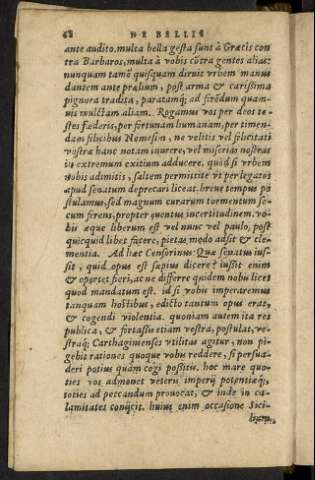 68 DE BELLIS
ante audito. multa bella gesta sunt à Græcis con
tra Barbaros, multa à vobis cōtra gentes alias:
nunquam tamē quisquam diruit vrbem manus
dantem ante prælium, post arma & carissima
pignora tradita, paratamq; ad
uis mulctam aliam. Rogamus vos per deos te-
stes fœderis, per fortunam humanam, per timen-
dam felicibus Nemesim, ne velitis vel felicitati
vestræ hanc notam inurere, vel miserias nostras
in extremum exitium adducere. quòd si vrbem
nobis adimitis, saltem permittite vt per legatos
apud senatum deprecari liceat. breue tempus po
stulamus, sed magnum curarum tormentum se-
cum ferens, propter euentus incertitudinem. vo-
bis æque liberum est vel nunc vel paulo pòst
quicquid libet facere, pietas modò adsit & cle-
mentia. Ad hæc Censorinus: Quæ senatus iuss-
sit, quid opus est sæpius dicere? iussit enim
& oportet fieri, at ne differre quidem nobis licet
quod mandatum est. id si vobis imperaremus
tanquam hostibus, edicto tantum opus erat,
& cogendi violentia. quoniam autem ita res
publica, & fortassis etiam vestra, postulat, ve-
straq; Carthaginenses vtilitas agitur, non pi-
gebit rationes quoque vobis reddere, si persua-
deri potius quàm cogi possitis. hoc mare quo-
ties vos admonet veteris imperij potentiæq;,
toties ad peccandum prouocat, & inde in ca-
lamitates conijcit. huius enim occasione Sici-
liam